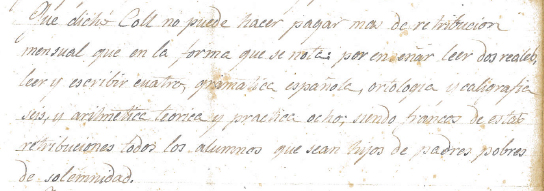 Que dicho Coll no puede hacer pagar mas de retribucion
mensual que en la forma que se nota: por enseñar leer dos reales,
leer y escribir cuatro, gramatica española, oriologia y caligrafia
seis, y aritmetica teorica y practica ocho; siendo francos de estas
retribuciones todos los alumnos que sean hijos de padres pobres
de solemnidad.